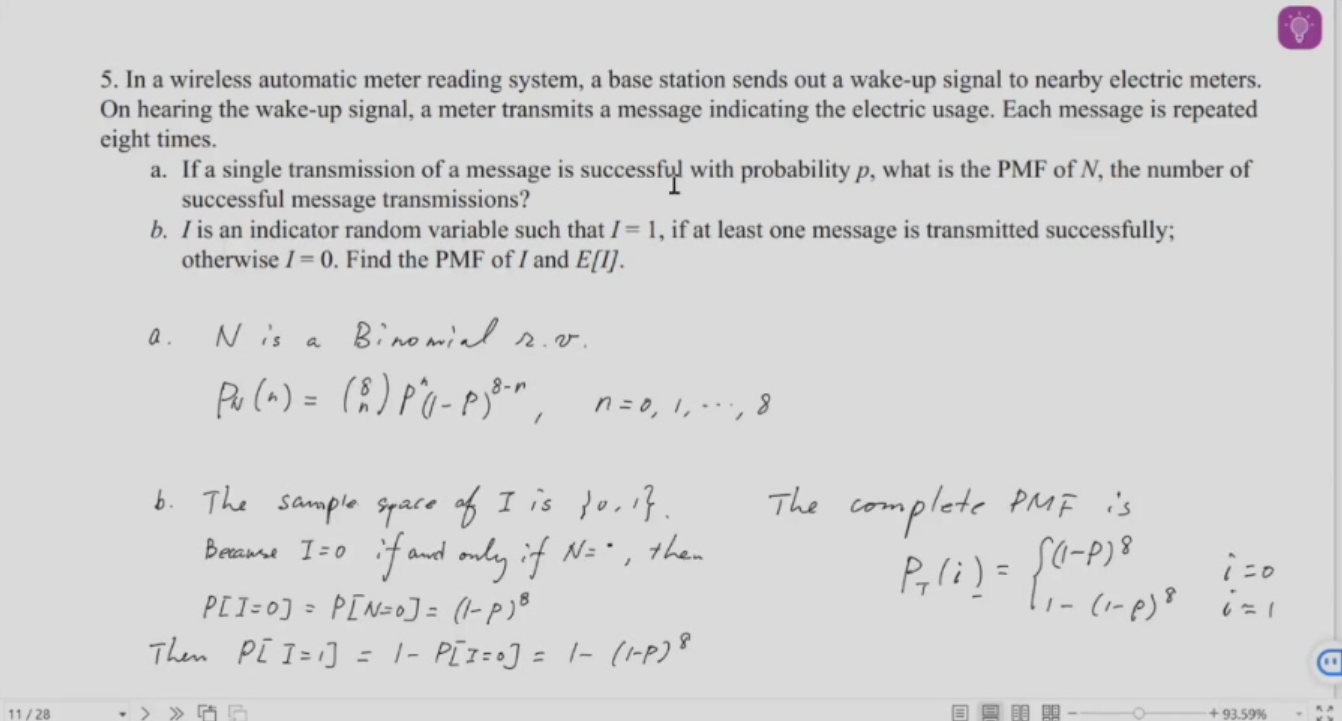 5. In a wireless automatic meter reading system, a base station sends out a wake-up signal to nearby electric meters.
On hearing the wake-up signal, a meter transmits a message indicating the electric usage. Each message is repeated
eight times.
a. If a single transmission of a message is successful with probability p, what is the PMF of N, the number of
successful message transmissions?
b. I is an indicator random variable such that I = 1, if at least one message is transmitted successfully;
otherwise I = 0. Find the PMF of I and E[I].
a. N is a Binomial r.v.
P_N(n) = (8 n) p^n (1-p)^{8-n}, n=0, 1, ..., 8
b. The sample space of I is {0,1}.
Because I=0 if and only if N=0, then
P[I=0] = P[N=0] = (1-p)^8
Then P[I=1] = 1- P[I=0] = 1- (1-p)^8
The complete PMF is
P_I(i) = { (1-p)^8 i=0
1- (1-p)^8 i=1
11/28
+ 93.59%